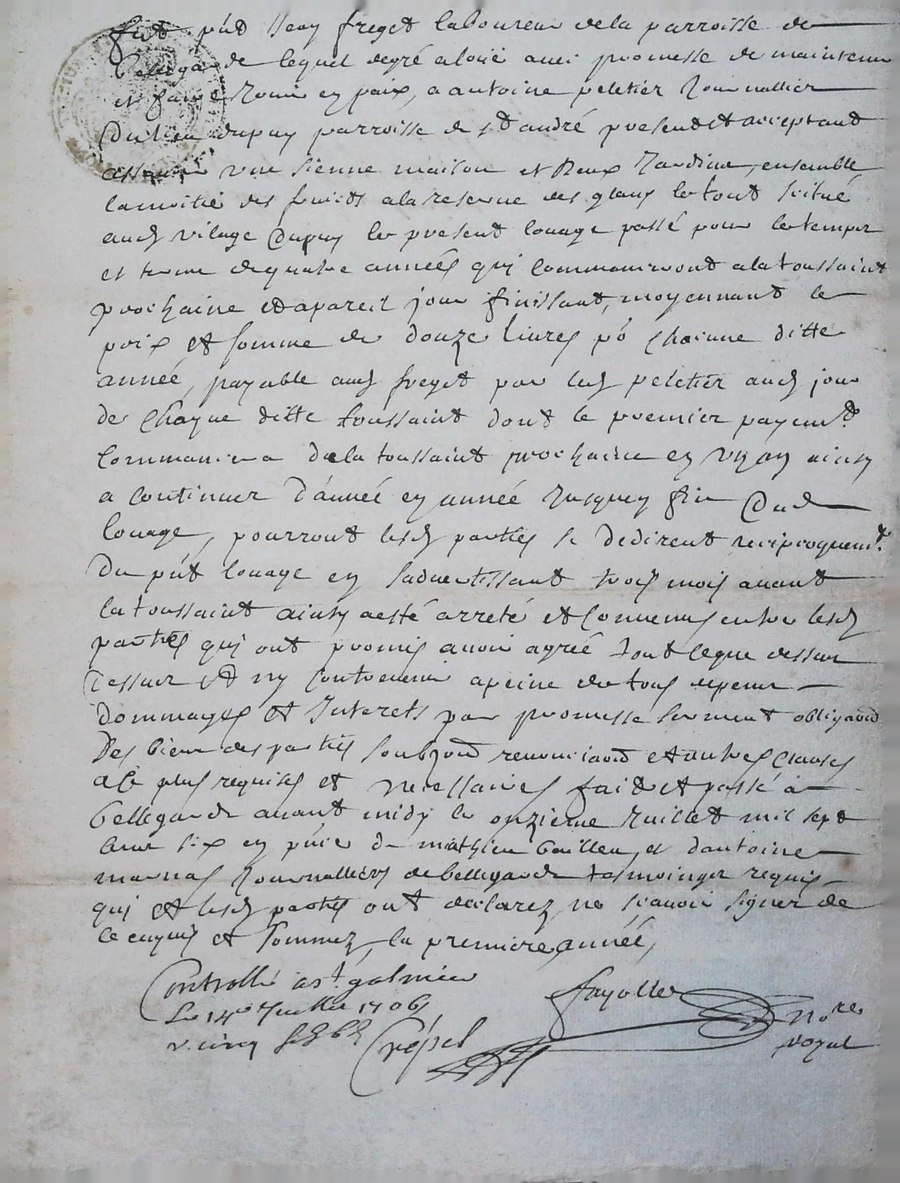 fut pñt Jean freget laboureur de la parroisse de
Bellegarde lequel degré a loüé avec promesse de maintenir
et faire Jouir en paix, a antoine peletier Journallier
Du lieu dupuy parroisse de st andré present et acceptant
assavoir une sienne maison et Deux Jardins, ensemble
la moitié des fruits a la reserve des glans le tout scitué
aud village Dupuy le present louage passé pour le temps
et terme de quatre années qui commanceront a la toussaint
prochaine et a pareil jour finissant, moyennant le
prix et somme de douze livres pr chacune ditte
année, payable aud freget par led peletier aud jour
de chaque ditte toussaint dont le premier payemt
commancera de la toussaint prochaine en un an ainsy
a continuer D'année en année Jusques fin Dud
louage, pourront lesd parties se dedirent reciproquemt
Du pñt louage en sadvertissant trois mois avant
la toussaint ainsy a esté arreté et convenus entre lesd
parties qui ont promis avoir agréé tout ceque dessus
et ny contrevenir a peine de tous depens
dommages et Interets par promesse serment obligaõn
Des biens des parties soubzõn renonciaõn et autres clauses
a ce plus requises et necessaires fait et passé à
bellegarde avant midy le onzieme Juillet mil sept
cent six en pñce de mathieu bailleu, et d'antoine
marnas Journalliers de bellegarde tesmoings requis
qui et lesd parties ont declarez ne scavoir signer de
ce enquis et sommez, la premiere année,
Controllé a st galmier
Le 14e Juillet 1706
Crépet
fayolle
Nore
royal